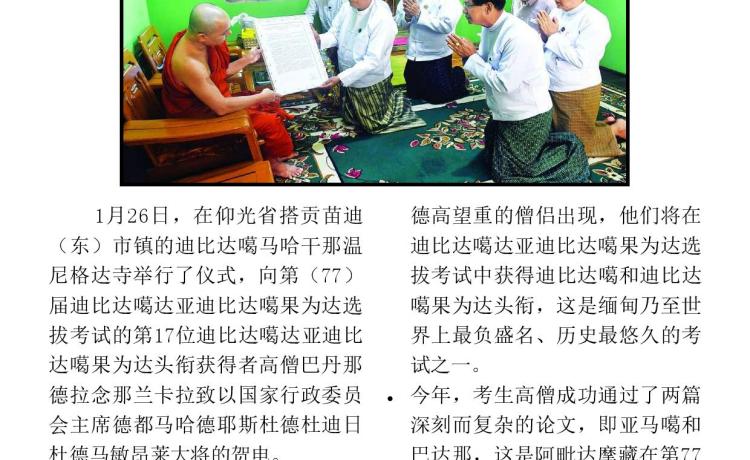 1月26日，在仰光省搭贡苗迪
（东）市镇的迪比达噶马哈干那温
尼格达寺举行了仪式，向第（77）
届迪比达噶达亚迪比达噶果为达选
拔考试的第17位迪比达噶达亚迪比
达噶果为达头衔获得者高僧巴丹那
德拉念那兰卡拉致以国家行政委员
会主席德都马哈德耶斯杜德杜迪日
杜德马敏昂莱大将的贺电。
德高望重的僧侣出现，他们将在
迪比达噶达亚迪比达噶果为达选
拔考试中获得迪比达噶和迪比达
噶果为达头衔，这是缅甸乃至世
界上最负盛名、历史最悠久的考
试之一。
• 今年，考生高僧成功通过了两篇
深刻而复杂的论文，即亚马噶和
巴达那，这是阿毗达摩藏在第77